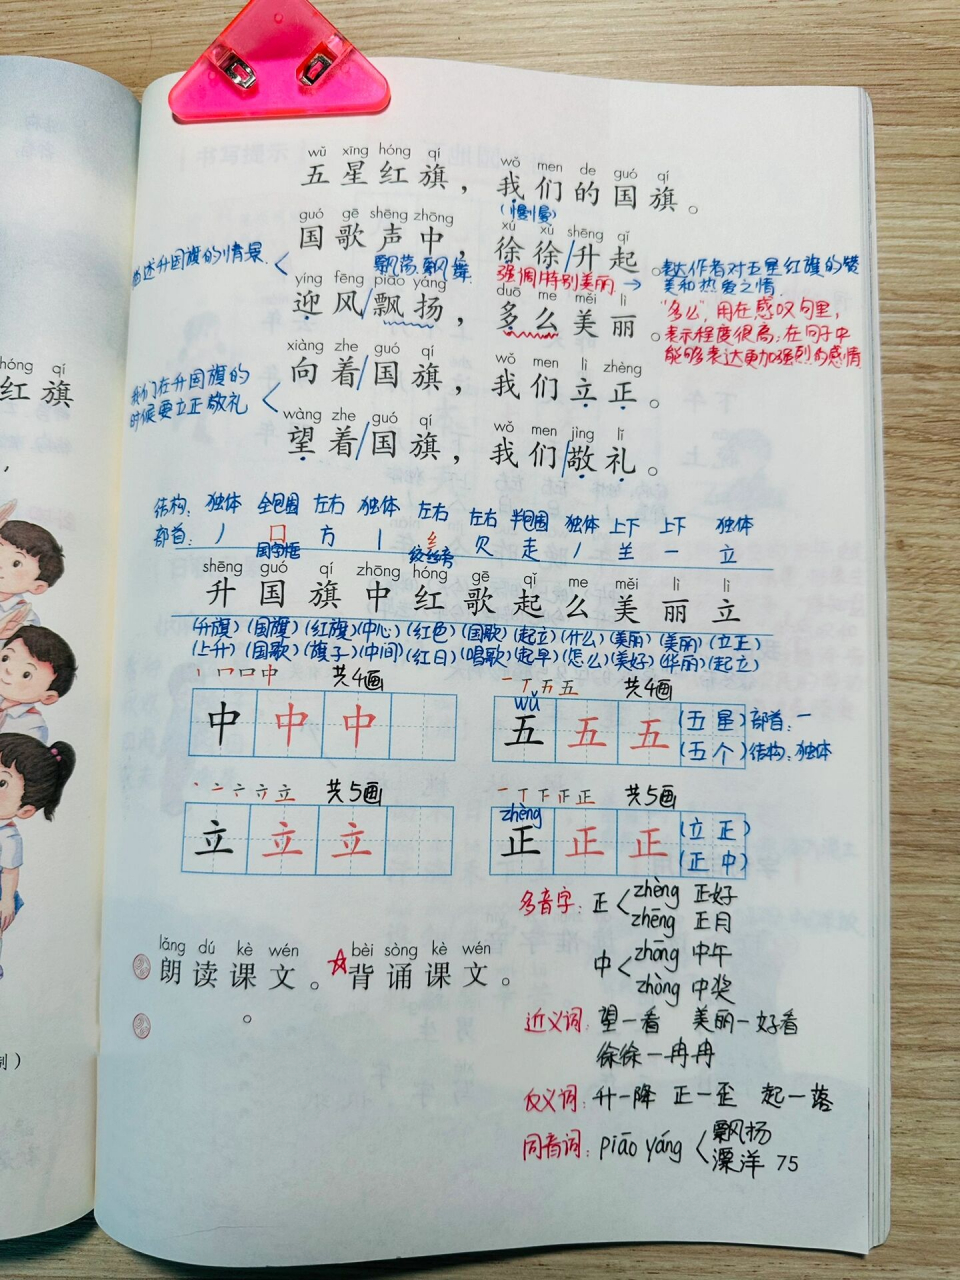 wǔ xīng hóng qí wǒ men de guó qí
五星红旗，我们的国旗。
(慢慢)
guó gē shēng zhōng xú xú shēng qǐ
国歌声中，徐徐/升起。
描述升国旗的情景.
飘荡.飘舞.
强调特别美丽→表达作者对五星红旗的赞
美和热爱之情.
yíng fēng piāo yáng duō me měi lì
迎风/飘扬，多么美丽。
"多么",用在感叹句里,
表示程度很高;在句子中
能够表达更加强烈的感情
xiàng zhe guó qí wǒ men lì zhèng
向着/国旗，我们立正。
我们在升国旗的
时候要立正敬礼
wàng zhe guó qí wǒ men jìng lǐ
望着/国旗，我们/敬礼。
hóng qí
红旗
结构: 独体 全包围 左右 独体 左右 左右 半包围 独体 上下 上下 独体
部首: 丿 囗 方 丨 纟 欠 走 丿 𦍌 一 立
国字框 绞丝旁
shēng guó qí zhōng hóng gē qǐ me měi lì lì
升国旗中红歌起么美丽立
(升旗)(国旗)(红旗)(中心)(红色)(国歌)(起立)(什么)(美丽)(美丽)(立正)
(上升)(国歌)(旗子)(中间)(红日)(唱歌)(起早)(怎么)(美好)(华丽)(起立)
丨 冂 口 中 共4画
一 丆 五 五 共4画
wǔ
中 中 中
五 五 五 (五星) 部首:一
(五个) 结构:独体
丶 亠 六 立 共5画
一 丅 下 正 正 共5画
zhèng
立 立 立
正 正 正 (立正)
(正中)
多音字: 正 zhèng 正好
zhēng 正月
中 zhōng 中午
zhòng 中奖
lǎng dú kè wén bèi sòng kè wén
朗读课文。☆背诵课文。
。
近义词: 望—看 美丽—好看
徐徐—冉冉
反义词: 升—降 正—歪 起—落
同音词: piāo yáng 飘扬
漂洋
75